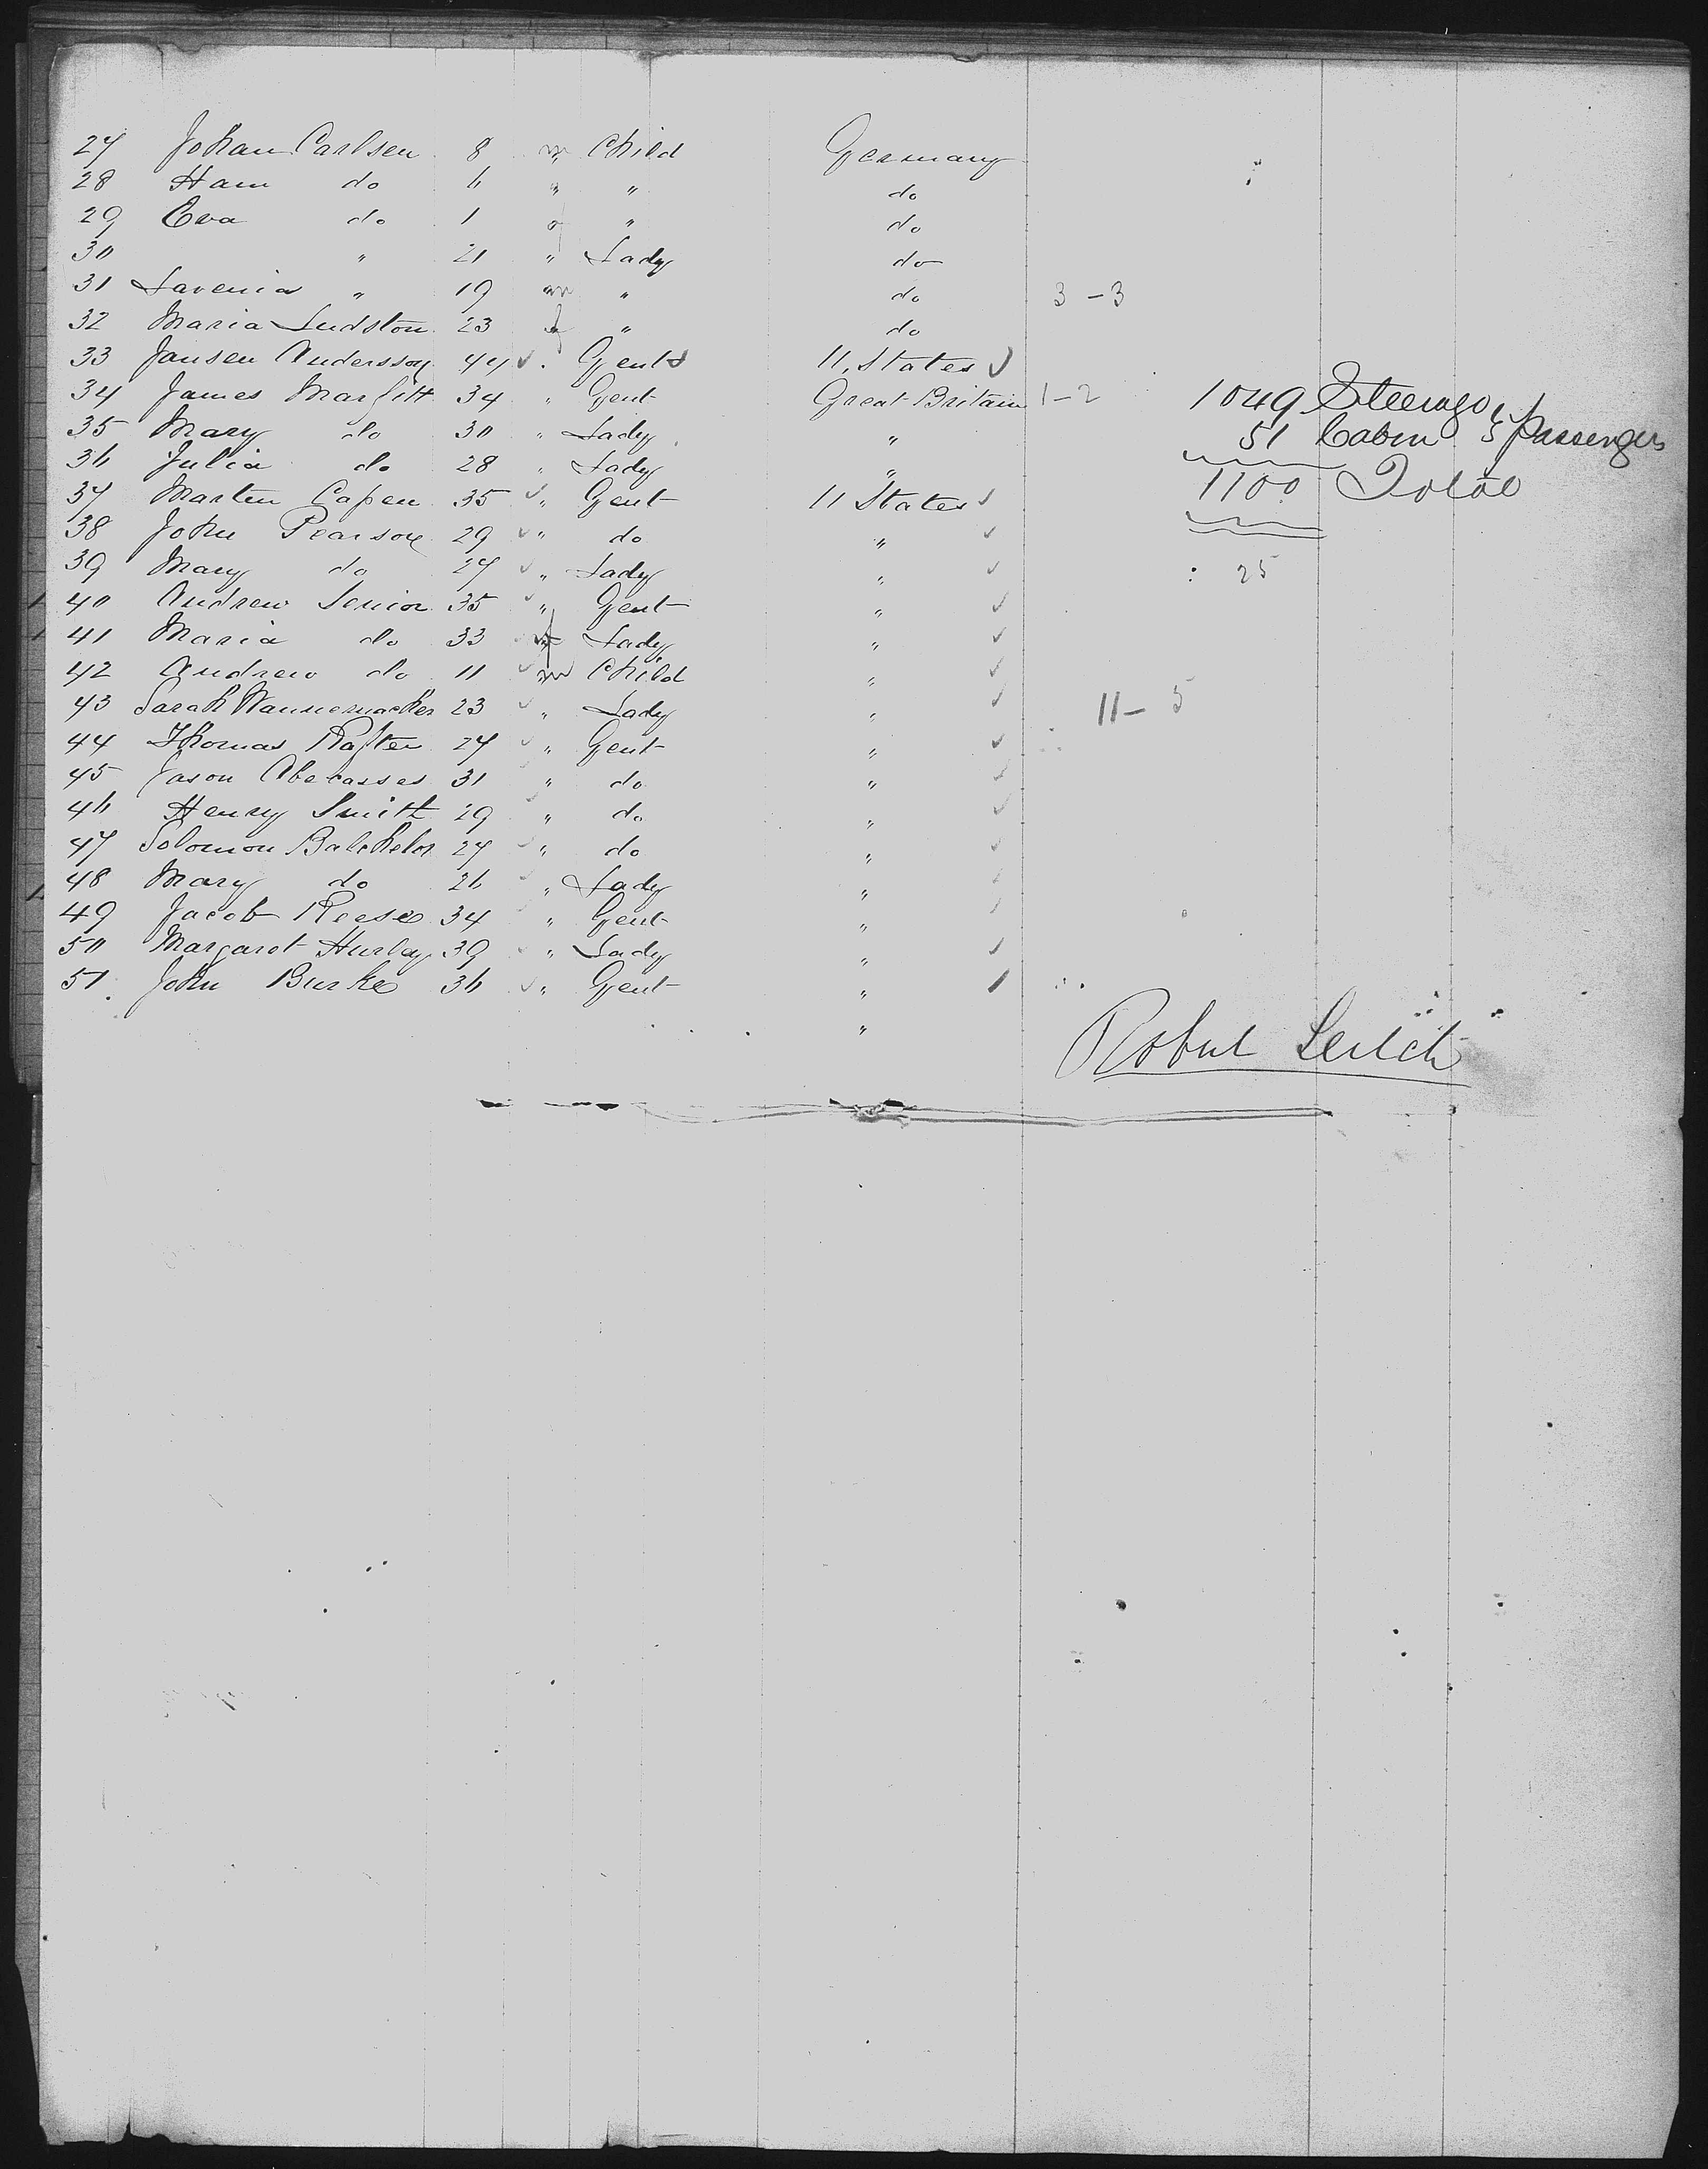 27 Johan Carlsen 8 m Child Germany
28 Ham do 6 " " do
29 Eva do 1 f " do
30 " 21 " Lady do
31 Lavenia " 19 m " do 3-3
32 Maria Ludston 23 f " do
33 Jansen Andersson 44 ✓ . Gent U. States ✓
34 James Marfitt 34 " Gent Great Britain 1-2
1049 Steerage
35 Mary do 30 " Lady "
51 Cabin Passengers
36 Julia do 28 " Lady "
1100 Total
37 Marten Capen 35 ✓ " Gent U States ✓
38 John Pearson 29 ✓ " do " ✓
39 Mary do 27 ✓ " Lady " ✓ : 25
40 Andrew Senior 35 ✓ " Gent " ✓
41 Maria do 33 ✓ f Lady " ✓
42 Andrew do 11 ✓ m Child " ✓
43 Sarah Wannemacker 23 ✓ " Lady " ✓ 11-5
44 Thomas Rafter 27 ✓ " Gent " ✓
45 Jason Abecasses 31 " do " ✓
46 Henry Smith 29 ✓ " do " ✓
47 Solomon Batchelor 27 ✓ " do " ✓
48 Mary do 26 ✓ " Lady " ✓
49 Jacob Reese 34 ✓ " Gent " ✓
50 Margaret Hurley 39 ✓ " Lady " ✓
51 John Burke 36 ✓ " Gent " ✓
"
Robert Leitch